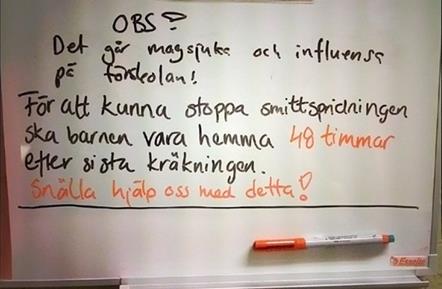 OBS!
Det går magsjuka och influensa
på förskolan!
För att kunna stoppa smittspridningen
ska barnen vara hemma 48 timmar
efter sista kräkningen.
Snälla hjälp oss med detta!
Esselte